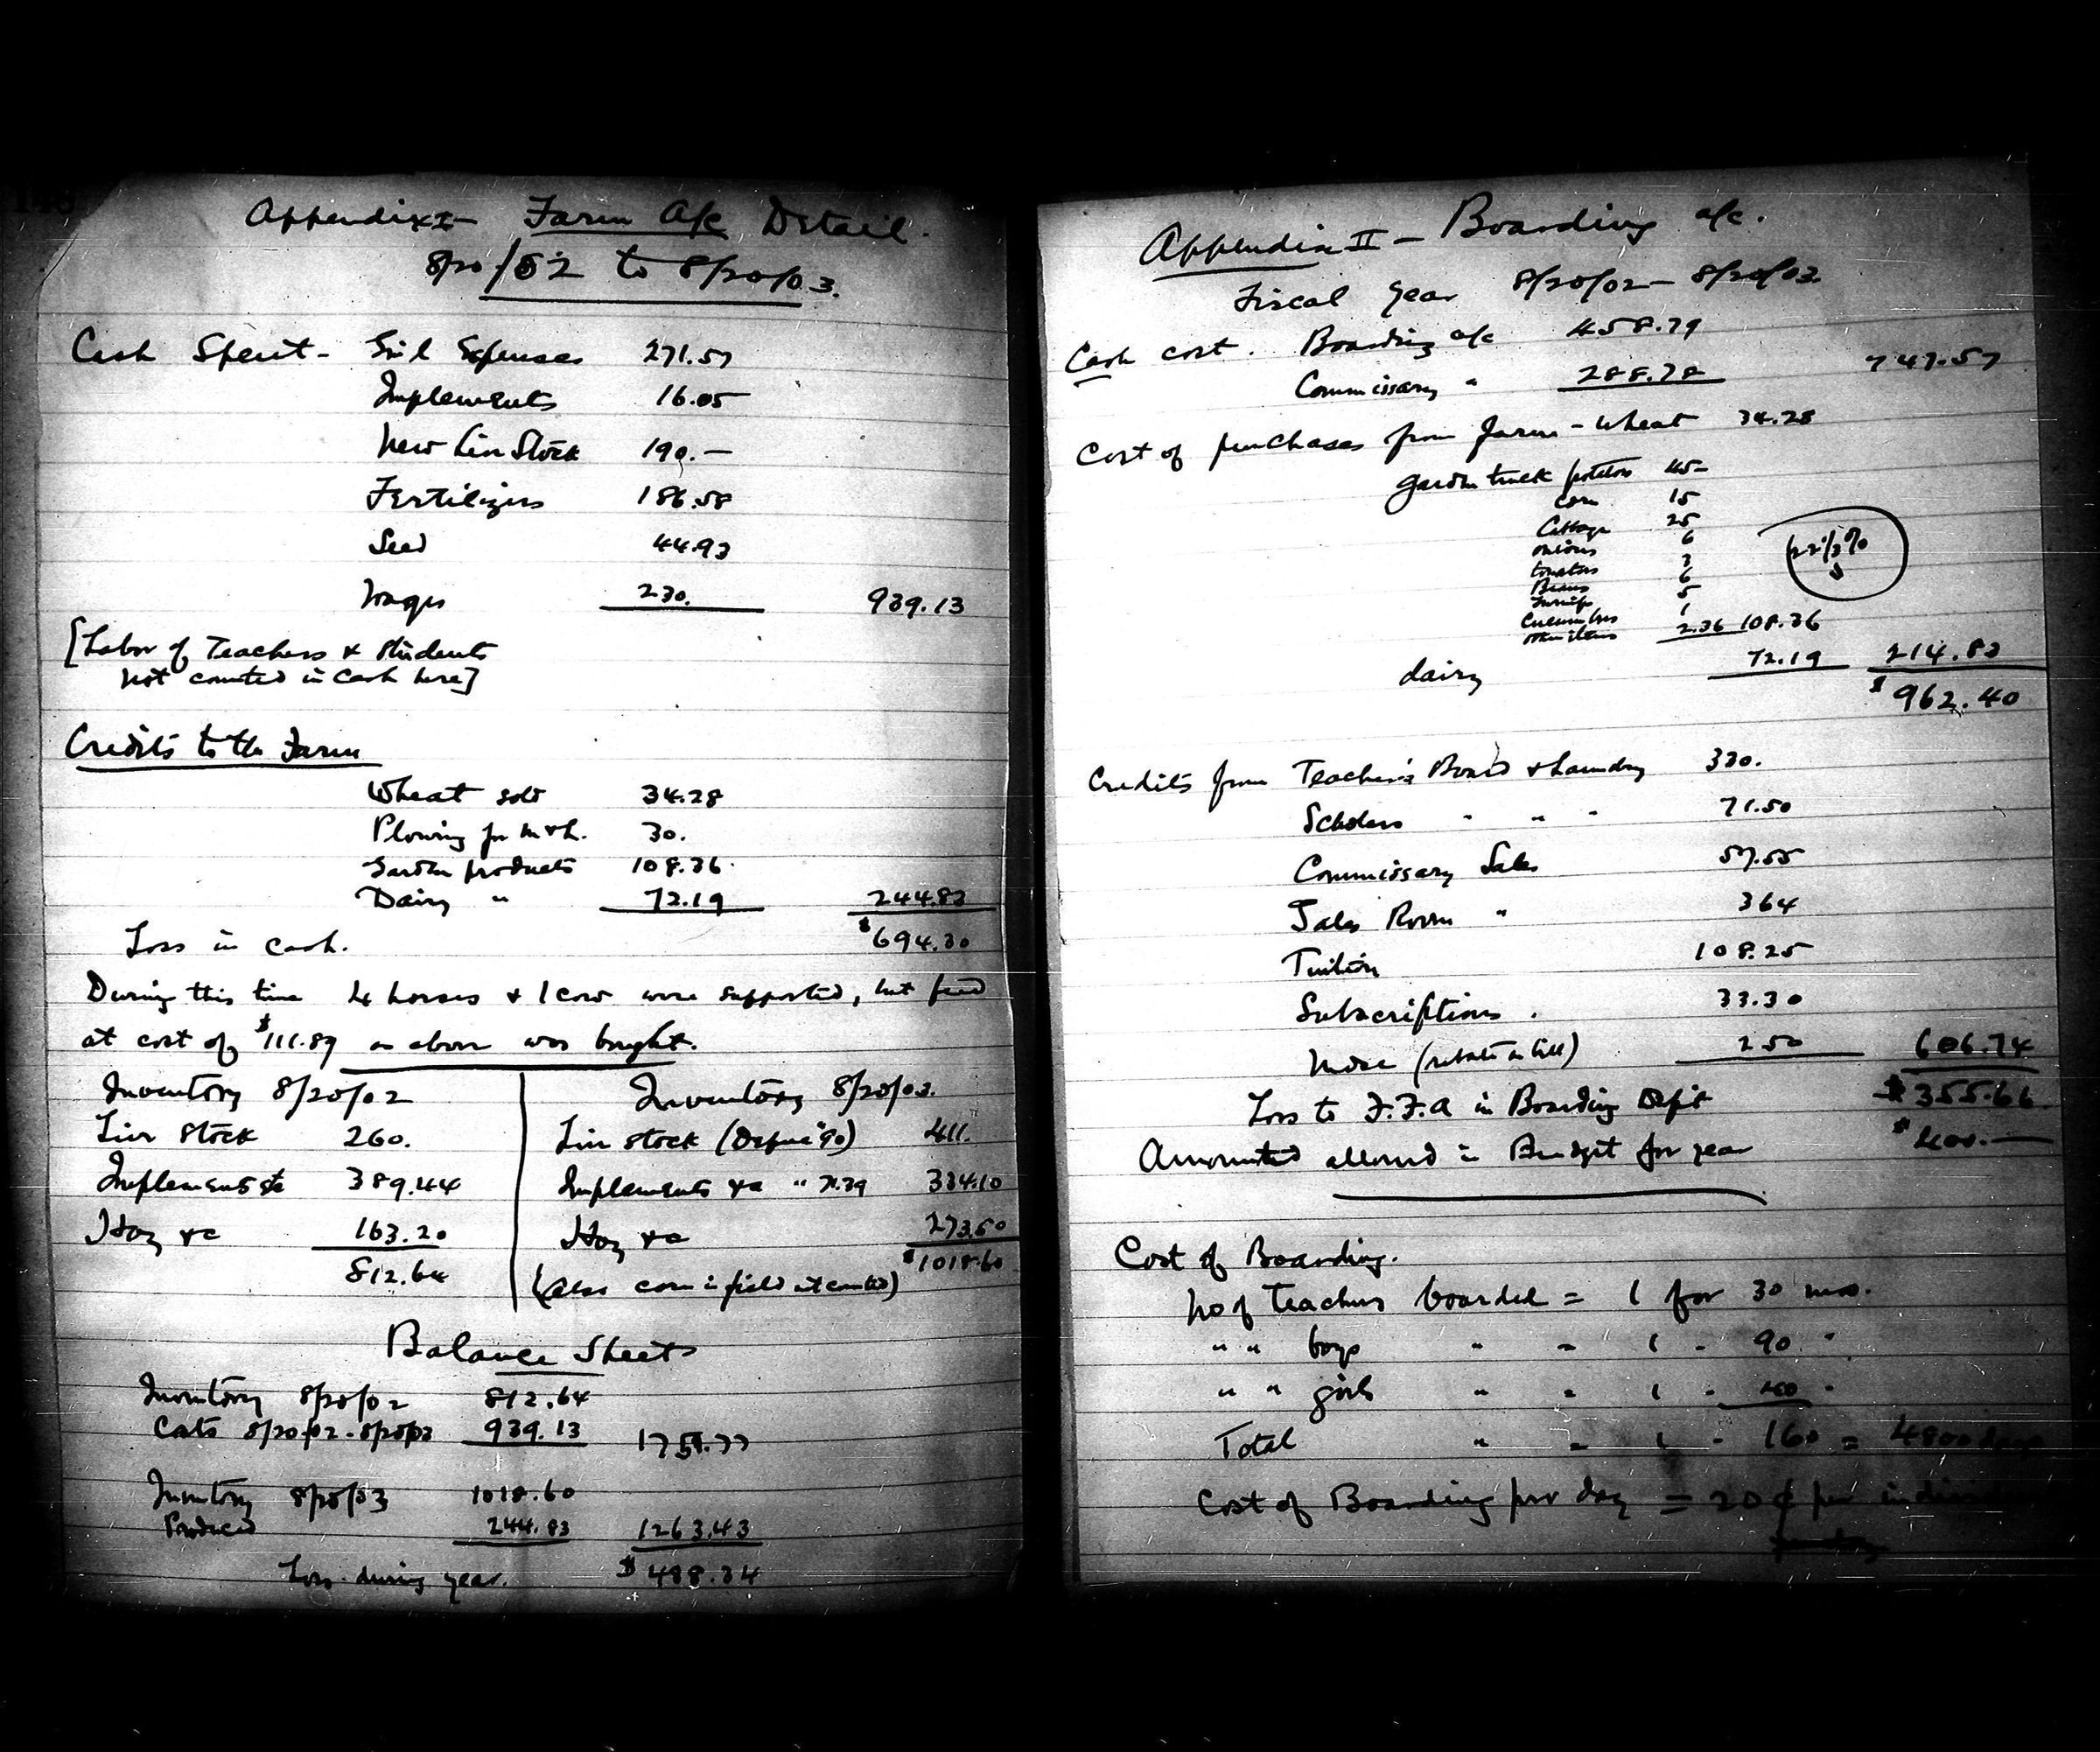 Appendix I - Farm a/c Detail.
8/20/02 to 8/20/03.
Cash Spent - Gen'l Expenses 271.57
Implements 16.05
New Live Stock 190.-
Fertilizers 186.58
Seed 44.93
Wages 230. 939.13
[Labor of Teachers & Students
not counted in cash here]
Credits to the Farm
Wheat sold 34.28
Plowing for M & L. 30.
Garden products 108.36
Dairy " 72.19 244.83
Loss in cash. $694.30
During this time 4 horses & 1 cow were supported, but feed
at cost of $111.89 as above was bought.
Inventory 8/20/02
Live Stock 260.
Implements &c 389.44
Hay &c 163.20
812.64
Inventory 8/20/03.
Live stock 411.
Implements &c " 71.39 334.10
Hay &c 273.50
$1018.60
(also corn in field not counted)
Balance Sheet
Inventory 8/20/02 812.64
Costs 8/20/02-8/20/03 939.13 1751.77
Inventory 8/20/03 1018.60
Produced 244.83 1263.43
Loss during year. $488.34
Appendix II - Boarding a/c.
Fiscal Year 8/20/02 - 8/20/03.
Cash cost. Boarding a/c 458.79
Commissary " 288.78 747.57
Cost of purchases from farm - Wheat 34.28
Garden truck potatoes 45-
Corn 15
Cabbage 25
onions 6
tomatoes 3
Beans 6
Turnips 5
Cucumbers 1
other items 2.36 108.36
22 1/3 %
dairy 72.19 214.83
$962.40
Credits from Teacher's Board & Laundry 330.
Scholars " " " 71.50
Commissary Sales 57.55
Sales Room " 364
Tuition 108.25
Subscriptions. 33.30
Mdse (rebate on bill) 2 50 606.74
Loss to F.F.A in Boarding Dep't $355.66
Amounted allowed in Budget for year $400.-
Cost of Boarding.
No of Teachers boarded = 1 for 30 mos.
" " boys " = 1 " 90 "
" " girls " = 1 " 40 "
Total " = 1 " 160 = 4800 days
Cost of Boarding per day = 20¢ per